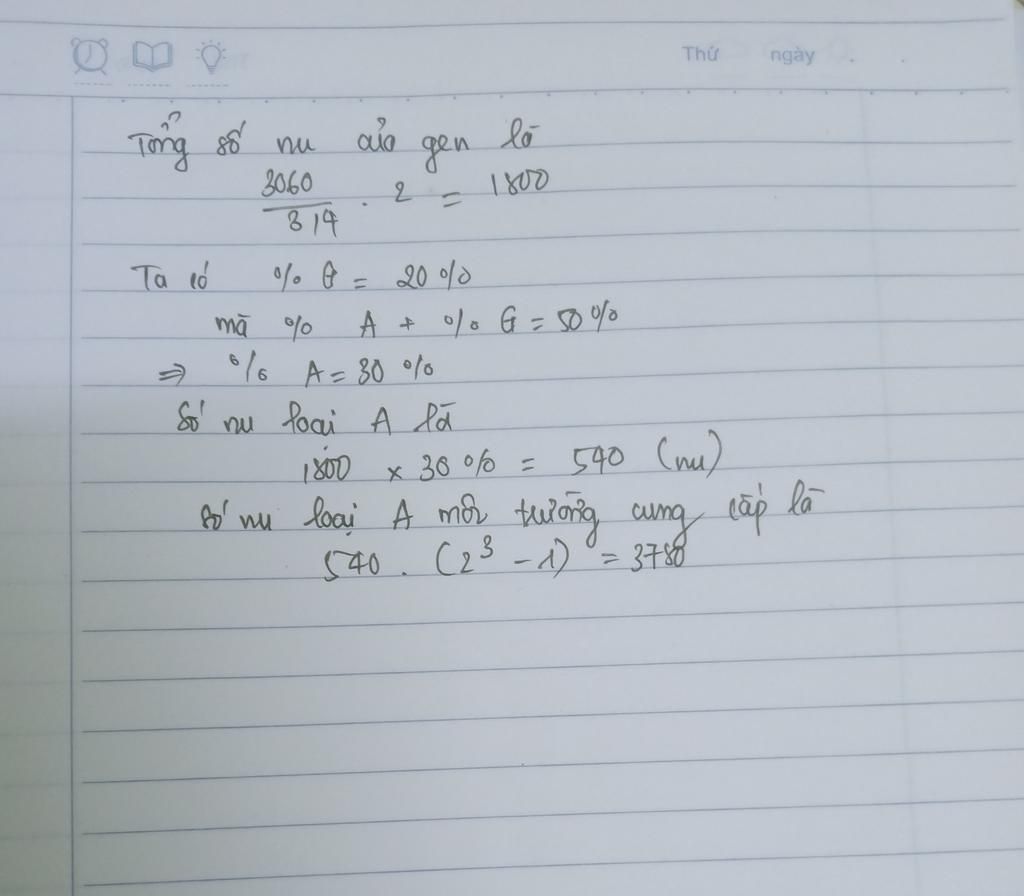 Thứ ngày
Tổng số nu của gen là
3060/3,4 . 2 = 1800
Ta có % G = 20 %
mà % A + % G = 50 %
⇒ % A = 30 %
Số nu loại A là
1800 x 30 % = 540 (nu)
Số nu loại A môi trường cung cấp là
540 . (2³ - 1) = 3780